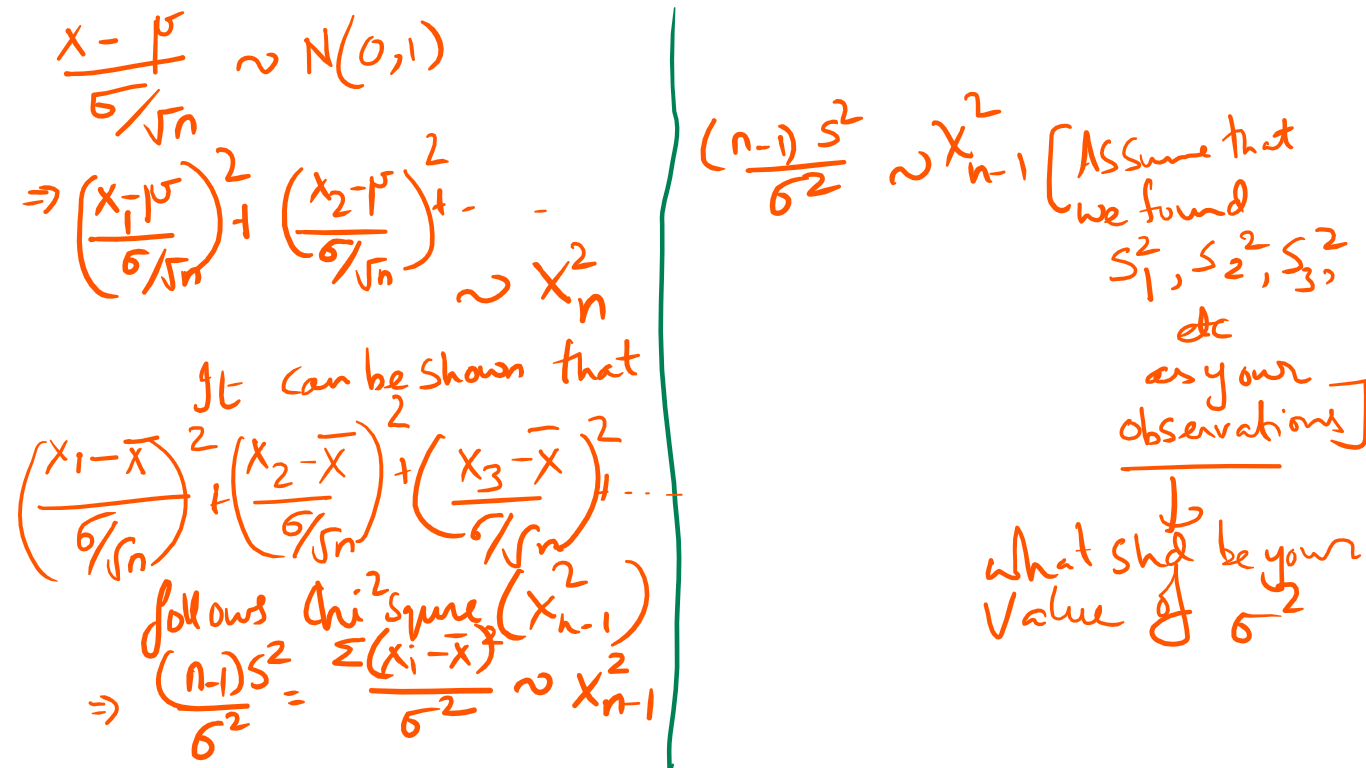 x - μ / σ/√n ~ N(0,1)
⇒ (x₁-μ / σ/√n)² + (x₂-μ / σ/√n)² + - -
~ X²ₙ
It can be shown that
(x₁ - x̄ / σ/√n)² + (x₂ - x̄ / σ/√n)² + (x₃ - x̄ / σ/√n)² + ----
follows Chi² squre (X²ₙ₋₁)
⇒ (n-1)S² / σ² = Σ(xᵢ - x̄)² / σ² ~ X²ₙ₋₁
(n-1) S² / σ² ~ X²ₙ₋₁ [Assume that
we found
S₁², S₂², S₃²,
etc
as your
observations]
↓
what shd be your
value of σ²